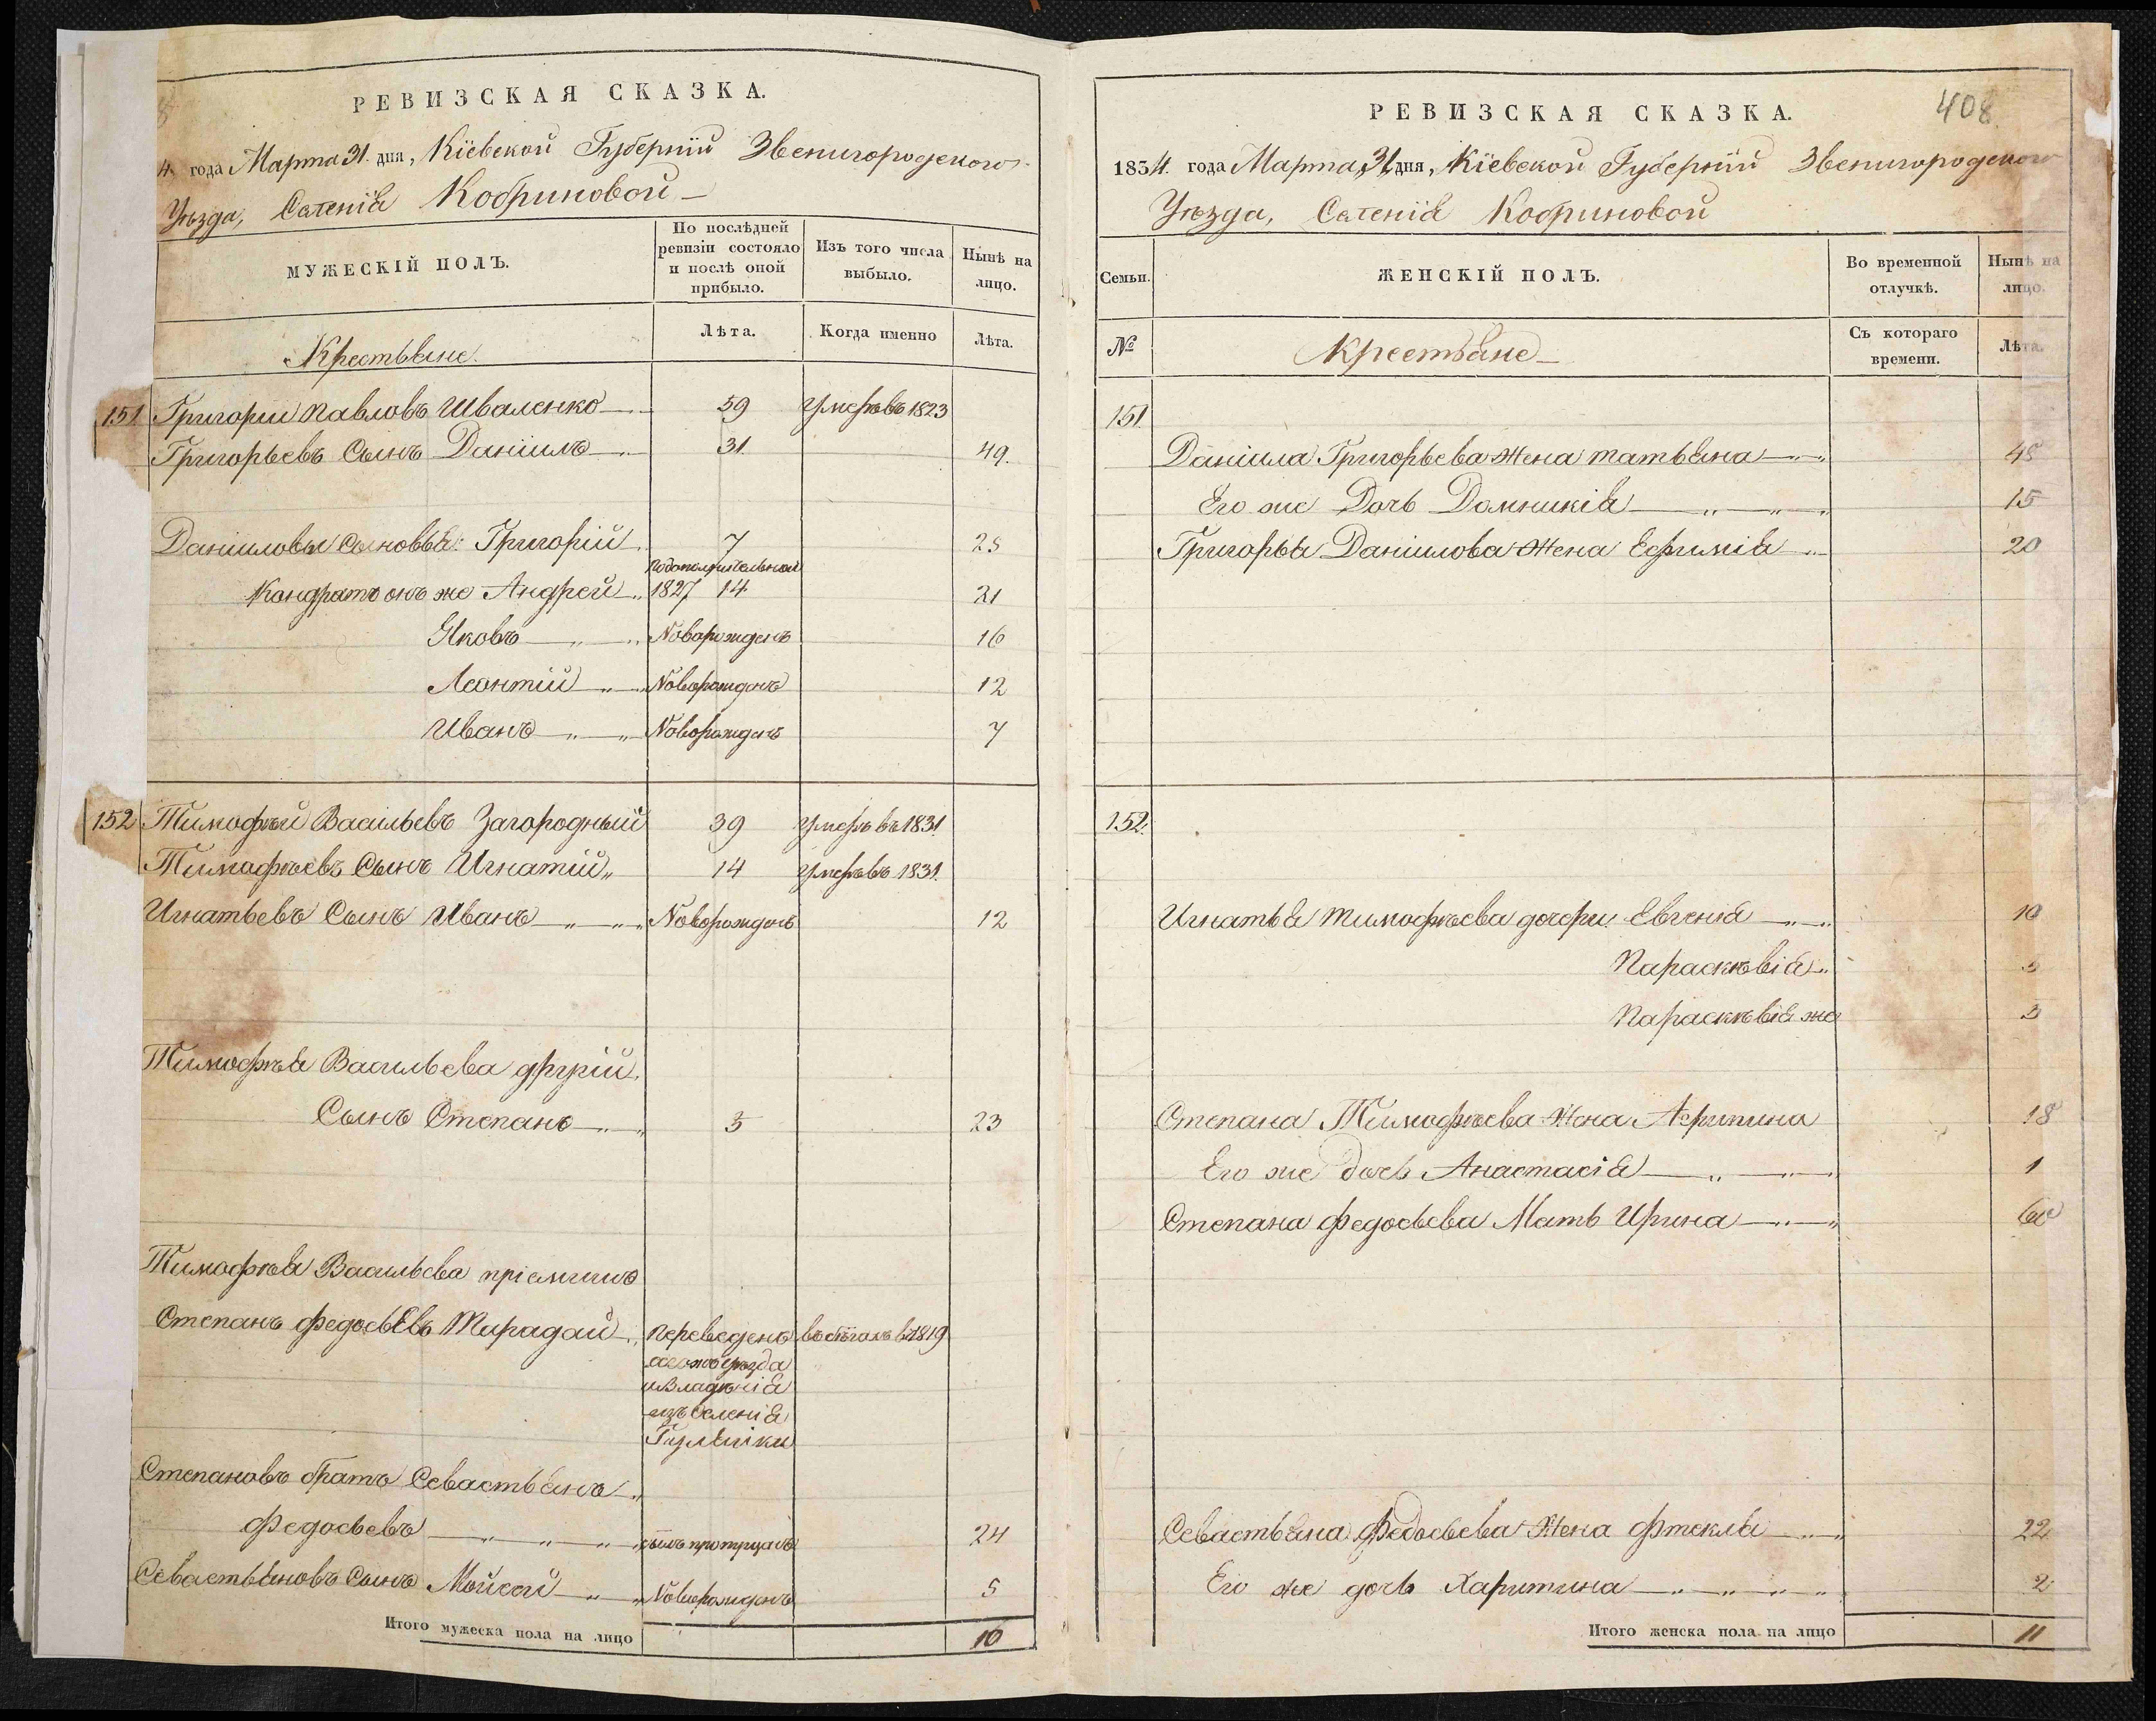 РЕВИЗСКАЯ СКАЗКА.
4. года Марта 31. дня, Кіевской Губерніи Звенигородского
Уѣзда, Селенія Кобриновой
МУЖЕСКІЙ ПОЛЪ.
По послѣдней ревизіи состояло и послѣ оной прибыло.
Изъ того числа выбыло.
Нынѣ на лицо.
Крестьяне.
Лѣта.
Когда именно
Лѣта.
151 Григории Павловъ Шваленко 59 Умеръ въ 1823
Григорьевъ Сынъ Даніилъ 31. 49.
Данииловы сыновья: Григорій 7 25
Кандратъ онъ же Андрей по дополнительной 1827 14 21
Яковъ Новорожденъ 16
Леонтій Новорожденъ 12
Иванъ Новорожденъ 7
152 Тимофѣй Васильевъ Загородный 39 Умеръ въ 1831.
Тимофѣевъ Сынъ Игнатій 14 Умеръ въ 1831.
Игнатьевъ Сынъ Иванъ Новорожденъ 12
Тимофѣя Васильева другій
Сынъ Степанъ 5 23
Тимофѣя Васильева пріемышъ
Степанъ Федосьевъ Шарадай Переведенъ въ бѣгахъ в 1819
сегожъ уѣзда
и владѣнія
изъ Селенія
Степановъ братъ Севастьянъ
Федосьевъ 24
Севастьяновъ Сынъ Мойсей Новорожденъ 5
Итого мужеска пола на лицо 16
408
РЕВИЗСКАЯ СКАЗКА.
1834. года Марта 31 дня, Кіевской Губерніи Звенигородского
Уѣзда, Селенія Кобриновой
Семьи.
ЖЕНСКІЙ ПОЛЪ.
Во временной отлучкѣ.
Нынѣ на лицо.
№
Крестьяне
Съ котораго времени.
Лѣта.
151
Даніила Григорьева жена Татьяна 45
Его же Дочь Домникія 15
Григорья Даніилова жена Ефимія 20
152.
Игнатья Тимофѣева дочери: Евгенія 10
Параскѣвія 5
Параскѣвія же 3
Степана Тимофѣева жена Агрипина 18
Его же дочь Анастасія 1
Степана Федосьева Мать Ирина 60
Севастьяна Федосьева жена Фтекла 22
Его же дочь Харитина 2
Итого женска пола на лицо 11